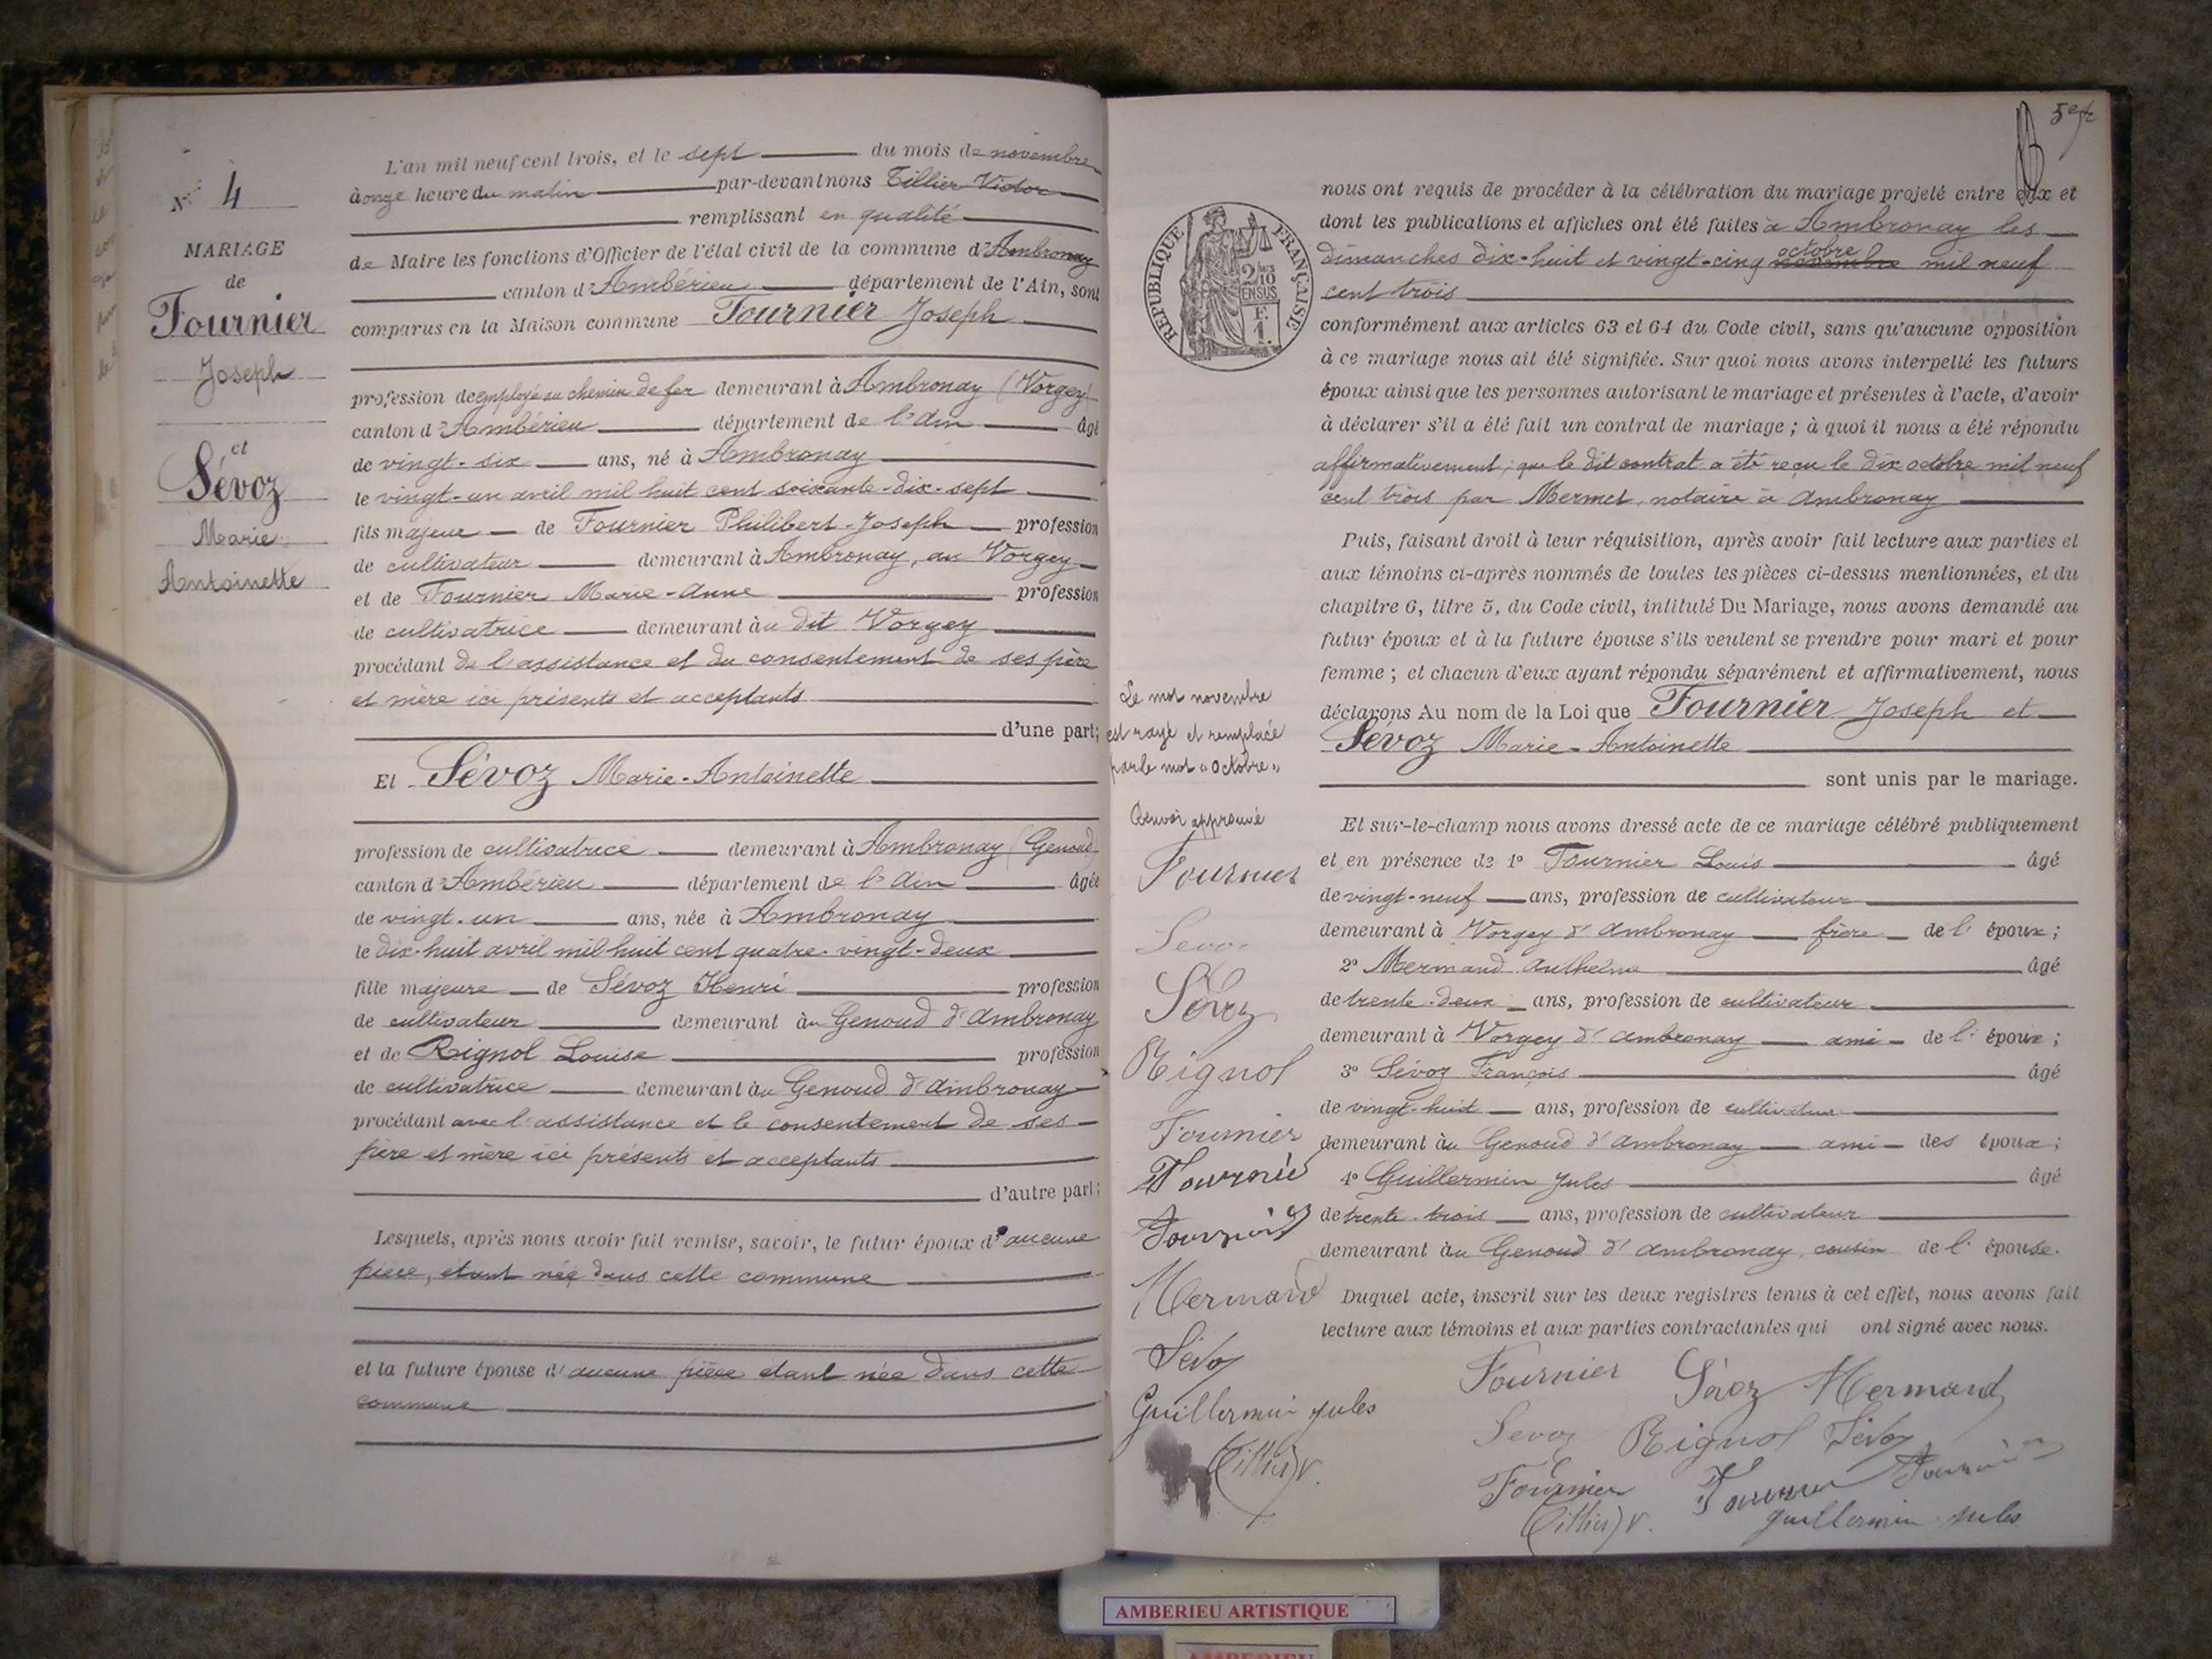 N° 4
MARIAGE
de
Fournier
Joseph
et
Sévoz
Marie
Antoinette
L'an mil neuf cent trois, et le sept du mois de novembre
à onze heure du matin par-devant nous Tillier Victor
remplissant en qualité
de Maire les fonctions d'Officier de l'état civil de la commune d'Ambronay
canton d'Ambérieu département de l'Ain, sont
comparus en la Maison commune Fournier Joseph
profession de employé au chemin de fer demeurant à Ambronay (Vorgey)
canton d'Ambérieu département de l'Ain âgé
de vingt-six ans, né à Ambronay
le vingt-un avril mil huit cent soixante-dix-sept
fils majeur de Fournier Philibert-Joseph profession
de cultivateur demeurant à Ambronay, au Vorgey
et de Fournier Marie-Anne profession
de cultivatrice demeurant àu dit Vorgey
procédant de l'assistance et du consentement de ses père
et mère ici présents et acceptants
d'une part;
Et Sévoz Marie-Antoinette
profession de cultivatrice demeurant à Ambronay (Genoud)
canton d'Ambérieu département de l'Ain âgée
de vingt-un ans, née à Ambronay
le dix-huit avril mil huit cent quatre-vingt-deux
fille majeure de Sévoz Henri profession
de cultivateur demeurant àu Genoud d'Ambronay
et de Rignol Louise profession
de cultivatrice demeurant àu Genoud d'Ambronay
procédant avec l'assistance et le consentement de ses
père et mère ici présents et acceptants
d'autre part;
Lesquels, après nous avoir fait remise, savoir, le futur époux d'aucune
pièce, étant née dans cette commune
et la future épouse d'aucune pièce étant née dans cette
commune
nous ont requis de procéder à la célébration du mariage projeté entre eux et
dont les publications et affiches ont été faites à Ambronay les
octobre
dimanches dix-huit et vingt-cinq novembre mil neuf
cent trois
RÉPUBLIQUE FRANÇAISE
2/10 EN SUS
F. 1.
conformément aux articles 63 et 64 du Code civil, sans qu'aucune opposition
à ce mariage nous ait été signifiée. Sur quoi nous avons interpellé les futurs
époux ainsi que les personnes autorisant le mariage et présentes à l'acte, d'avoir
à déclarer s'il a été fait un contrat de mariage ; à quoi il nous a été répondu
affirmativement ; que le dit contrat a été reçu le dix octobre mil neuf
cent trois par Mermet, notaire à Ambronay
Puis, faisant droit à leur réquisition, après avoir fait lecture aux parties et
aux témoins ci-après nommés de toutes les pièces ci-dessus mentionnées, et du
chapitre 6, titre 5, du Code civil, intitulé Du Mariage, nous avons demandé au
futur époux et à la future épouse s'ils veulent se prendre pour mari et pour
femme ; et chacun d'eux ayant répondu séparément et affirmativement, nous
déclarons Au nom de la Loi que Fournier Joseph et
Sévoz Marie-Antoinette
sont unis par le mariage.
Et sur-le-champ nous avons dressé acte de ce mariage célébré publiquement
et en présence de 1° Fournier Louis âgé
de vingt-neuf ans, profession de cultivateur
demeurant à Vorgey d'Ambronay frère de l'époux ;
2° Mermand Anthelme âgé
de trente-deux ans, profession de cultivateur
demeurant à Vorgey d'Ambronay ami de l'époux ;
3° Sévoz François âgé
de vingt-huit ans, profession de cultivateur
demeurant àu Genoud d'Ambronay ami des époux ;
4° Guillermin Jules âgé
de trente-trois ans, profession de cultivateur
demeurant àu Genoud d'Ambronay, cousin de l'épouse.
Duquel acte, inscrit sur les deux registres tenus à cet effet, nous avons fait
lecture aux témoins et aux parties contractantes qui ont signé avec nous.
Le mot novembre
est rayé et remplacé
par le mot « octobre »
Renvoi approuvé
Fournier
Sevoz
Sévoz
Rignol
Fournier
Fournier
Fournier
Mermand
Sévoz
Guillermin Jules
Tillier V.
Fournier Sévoz Mermand
Sevoz Rignol Sévoz
Fournier Fournier Fournier
Tillier V. Guillermin Jules
AMBERIEU ARTISTIQUE
AMBERIEU